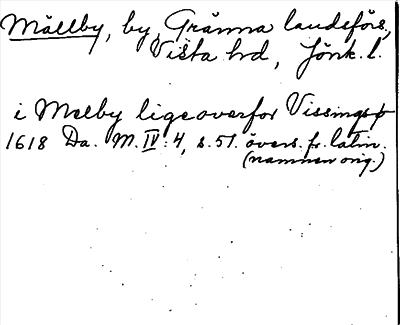 Mällby, by, Gränna landsförs.,
Vista hd, Jönk. l.
i Melby ligeoverfor Vissingsø
1618 Da. M. IV: 4, s. 51. övers. fr. latin.
(namnen orig.)